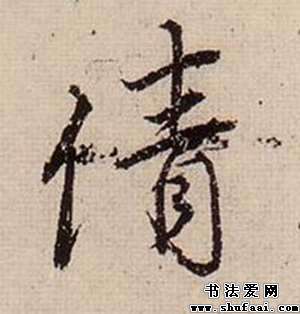 倩
书法爱网
www.shufaai.com